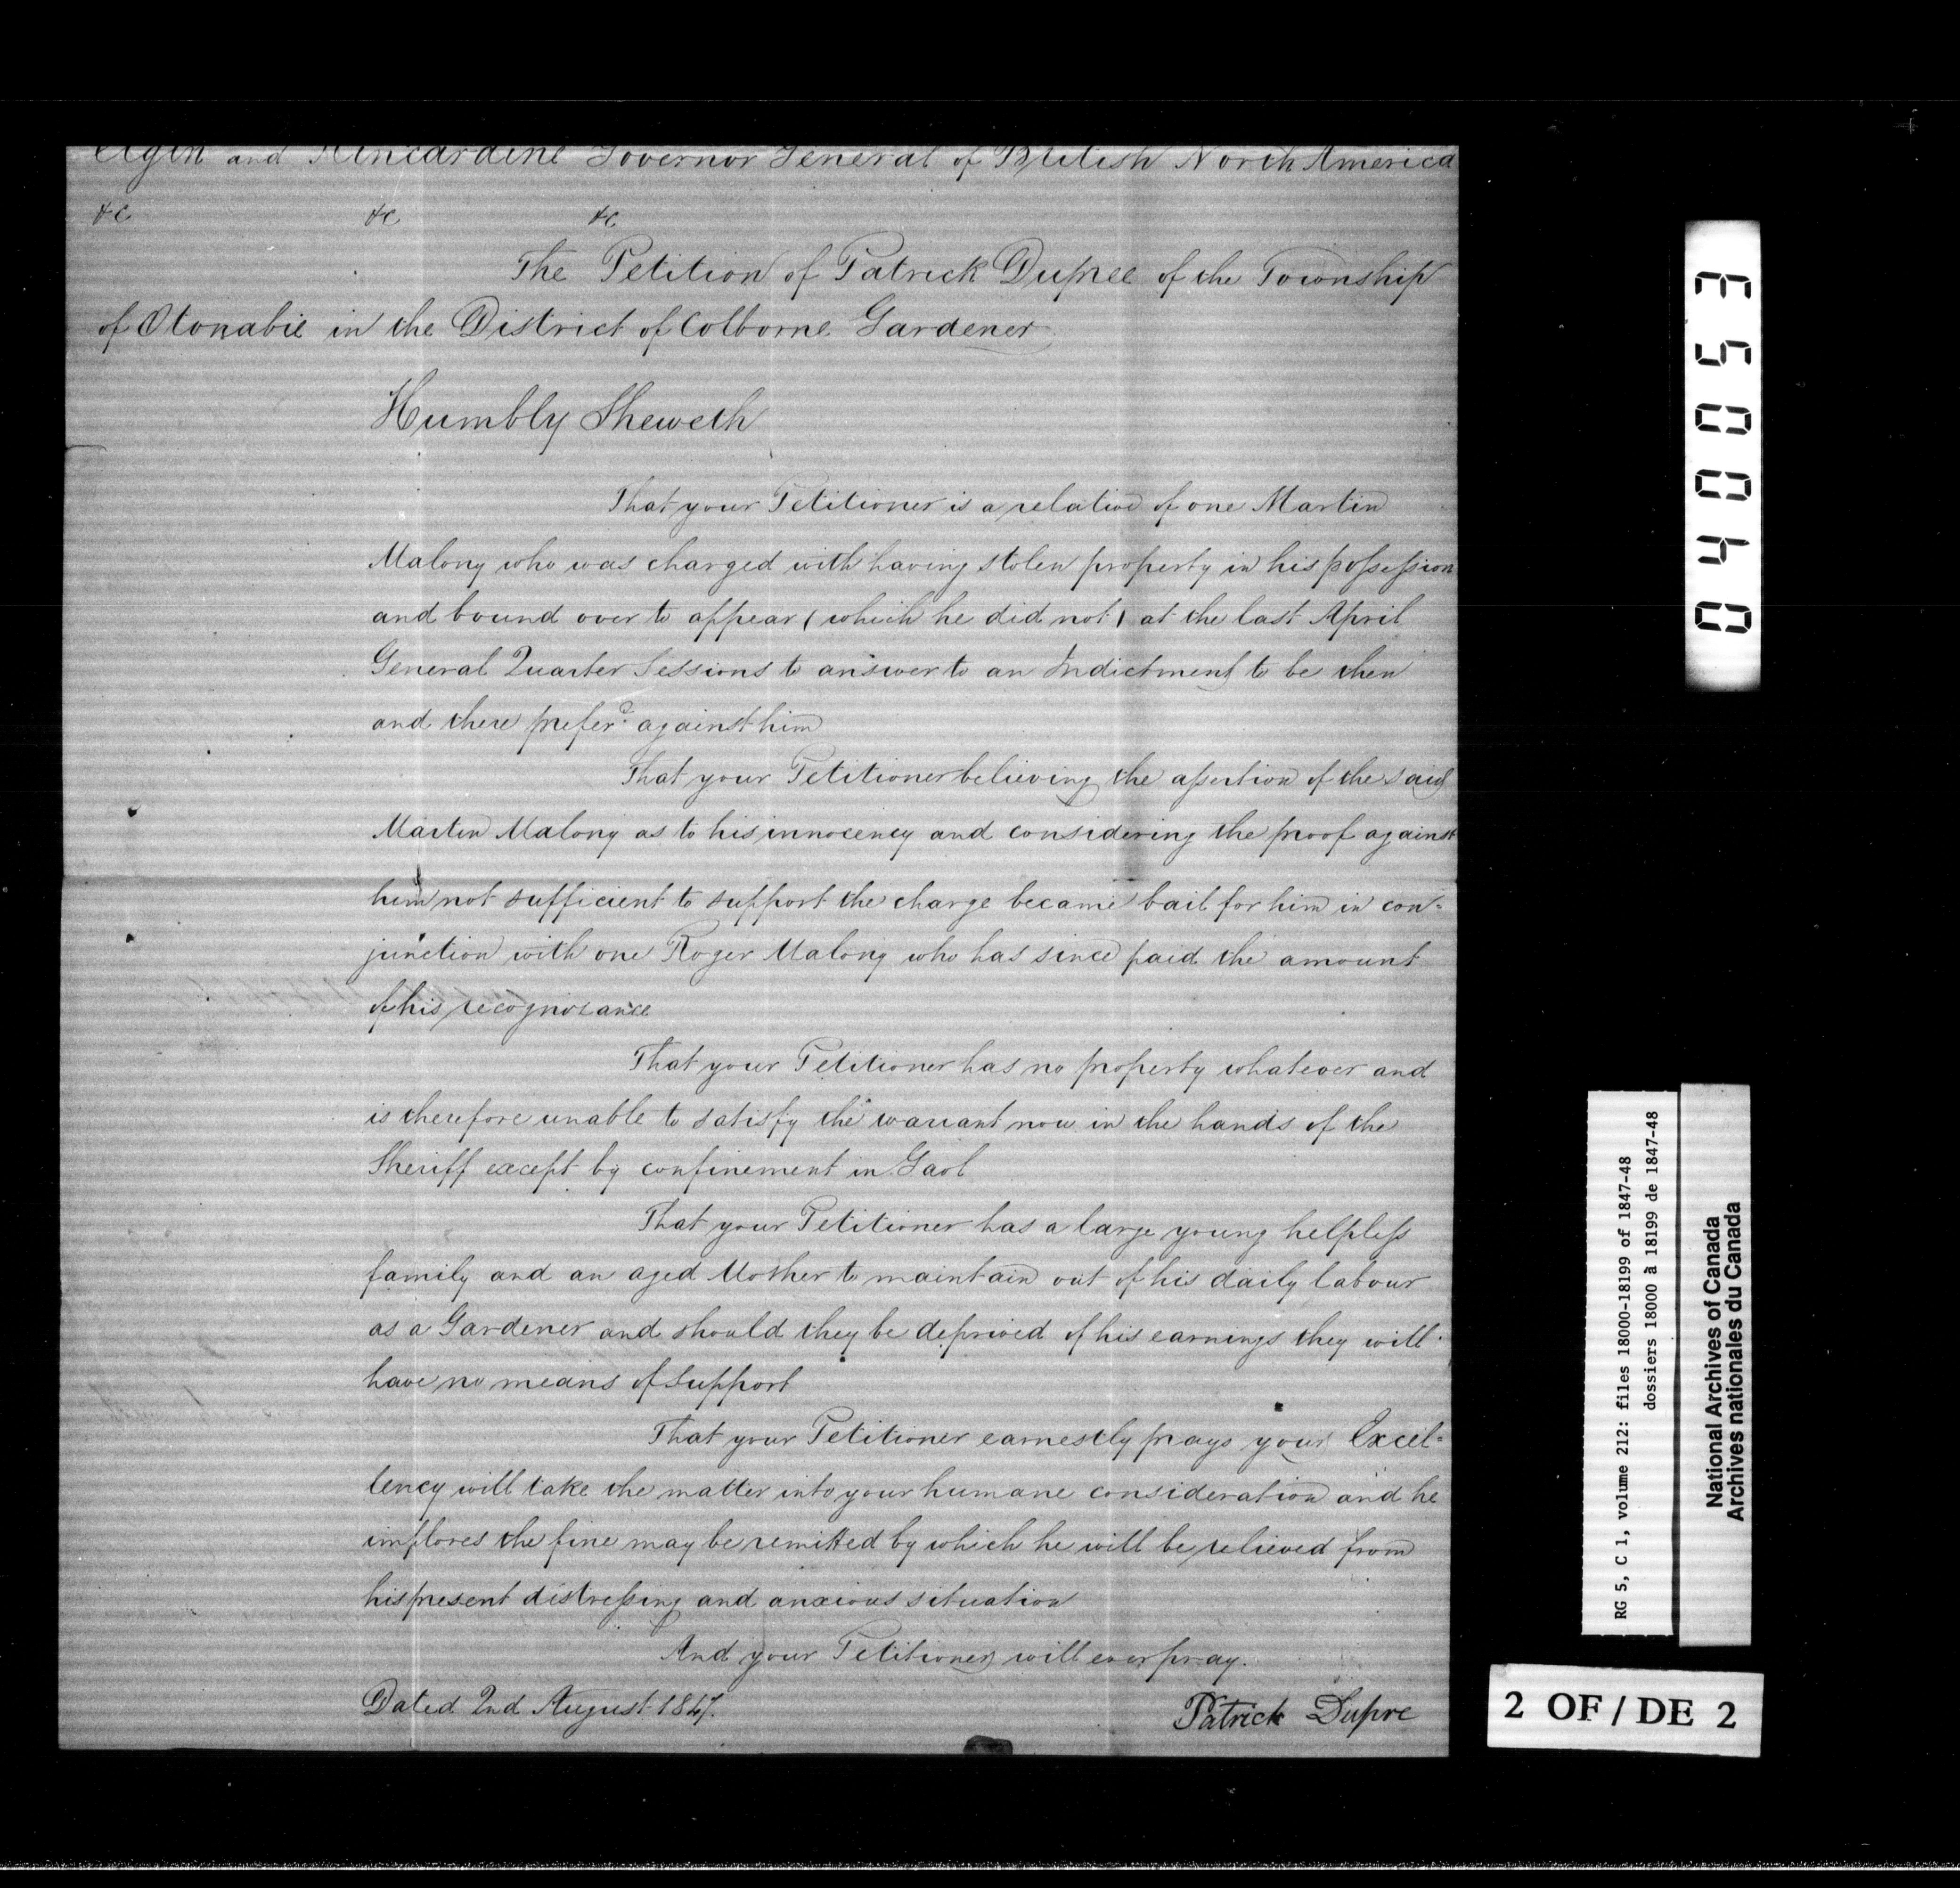 Elgin and Kincardine Governor General of British North America
&c &c &c
The Petition of Patrick Dupree of the Township
of Otonabie in the District of Colborne Gardener
Humbly Sheweth
That your Petitioner is a relative of one Martin
Malony who was charged with having stolen property in his possession
and bound over to appear (which he did not) at the last April
General Quarter Sessions to answer to an Indictment to be then
and there prefer.d against him
That your Petitioner believing the assertion of the said
Martin Malony as to his innocency and considering the proof against
him not sufficient to support the charge became bail for him in con=
junction with one Roger Malony who has since paid the amount
of his recognizance
That your Petitioner has no property whatever and
is therefore unable to satisfy the warrant now in the hands of the
Sheriff except by confinement in Gaol
That your Petitioner has a large young helpless
family and an aged Mother to maintain out of his daily labour
as a Gardener and should they be deprived of his earnings they will
have no means of support
That your Petitioner earnestly prays your Excel=
lency will take the matter into your humane consideration and he
implores the fine may be remitted by which he will be relieved from
his present distressing and anxious situation
And your Petitioner will ever pray.
Dated 2nd August 1847.
Patrick Dupre
040053
RG 5, C 1, volume 212: files 18000-18199 of 1847-48
dossiers 18000 à 18199 de 1847-48
National Archives of Canada
Archives nationales du Canada
2 OF / DE 2